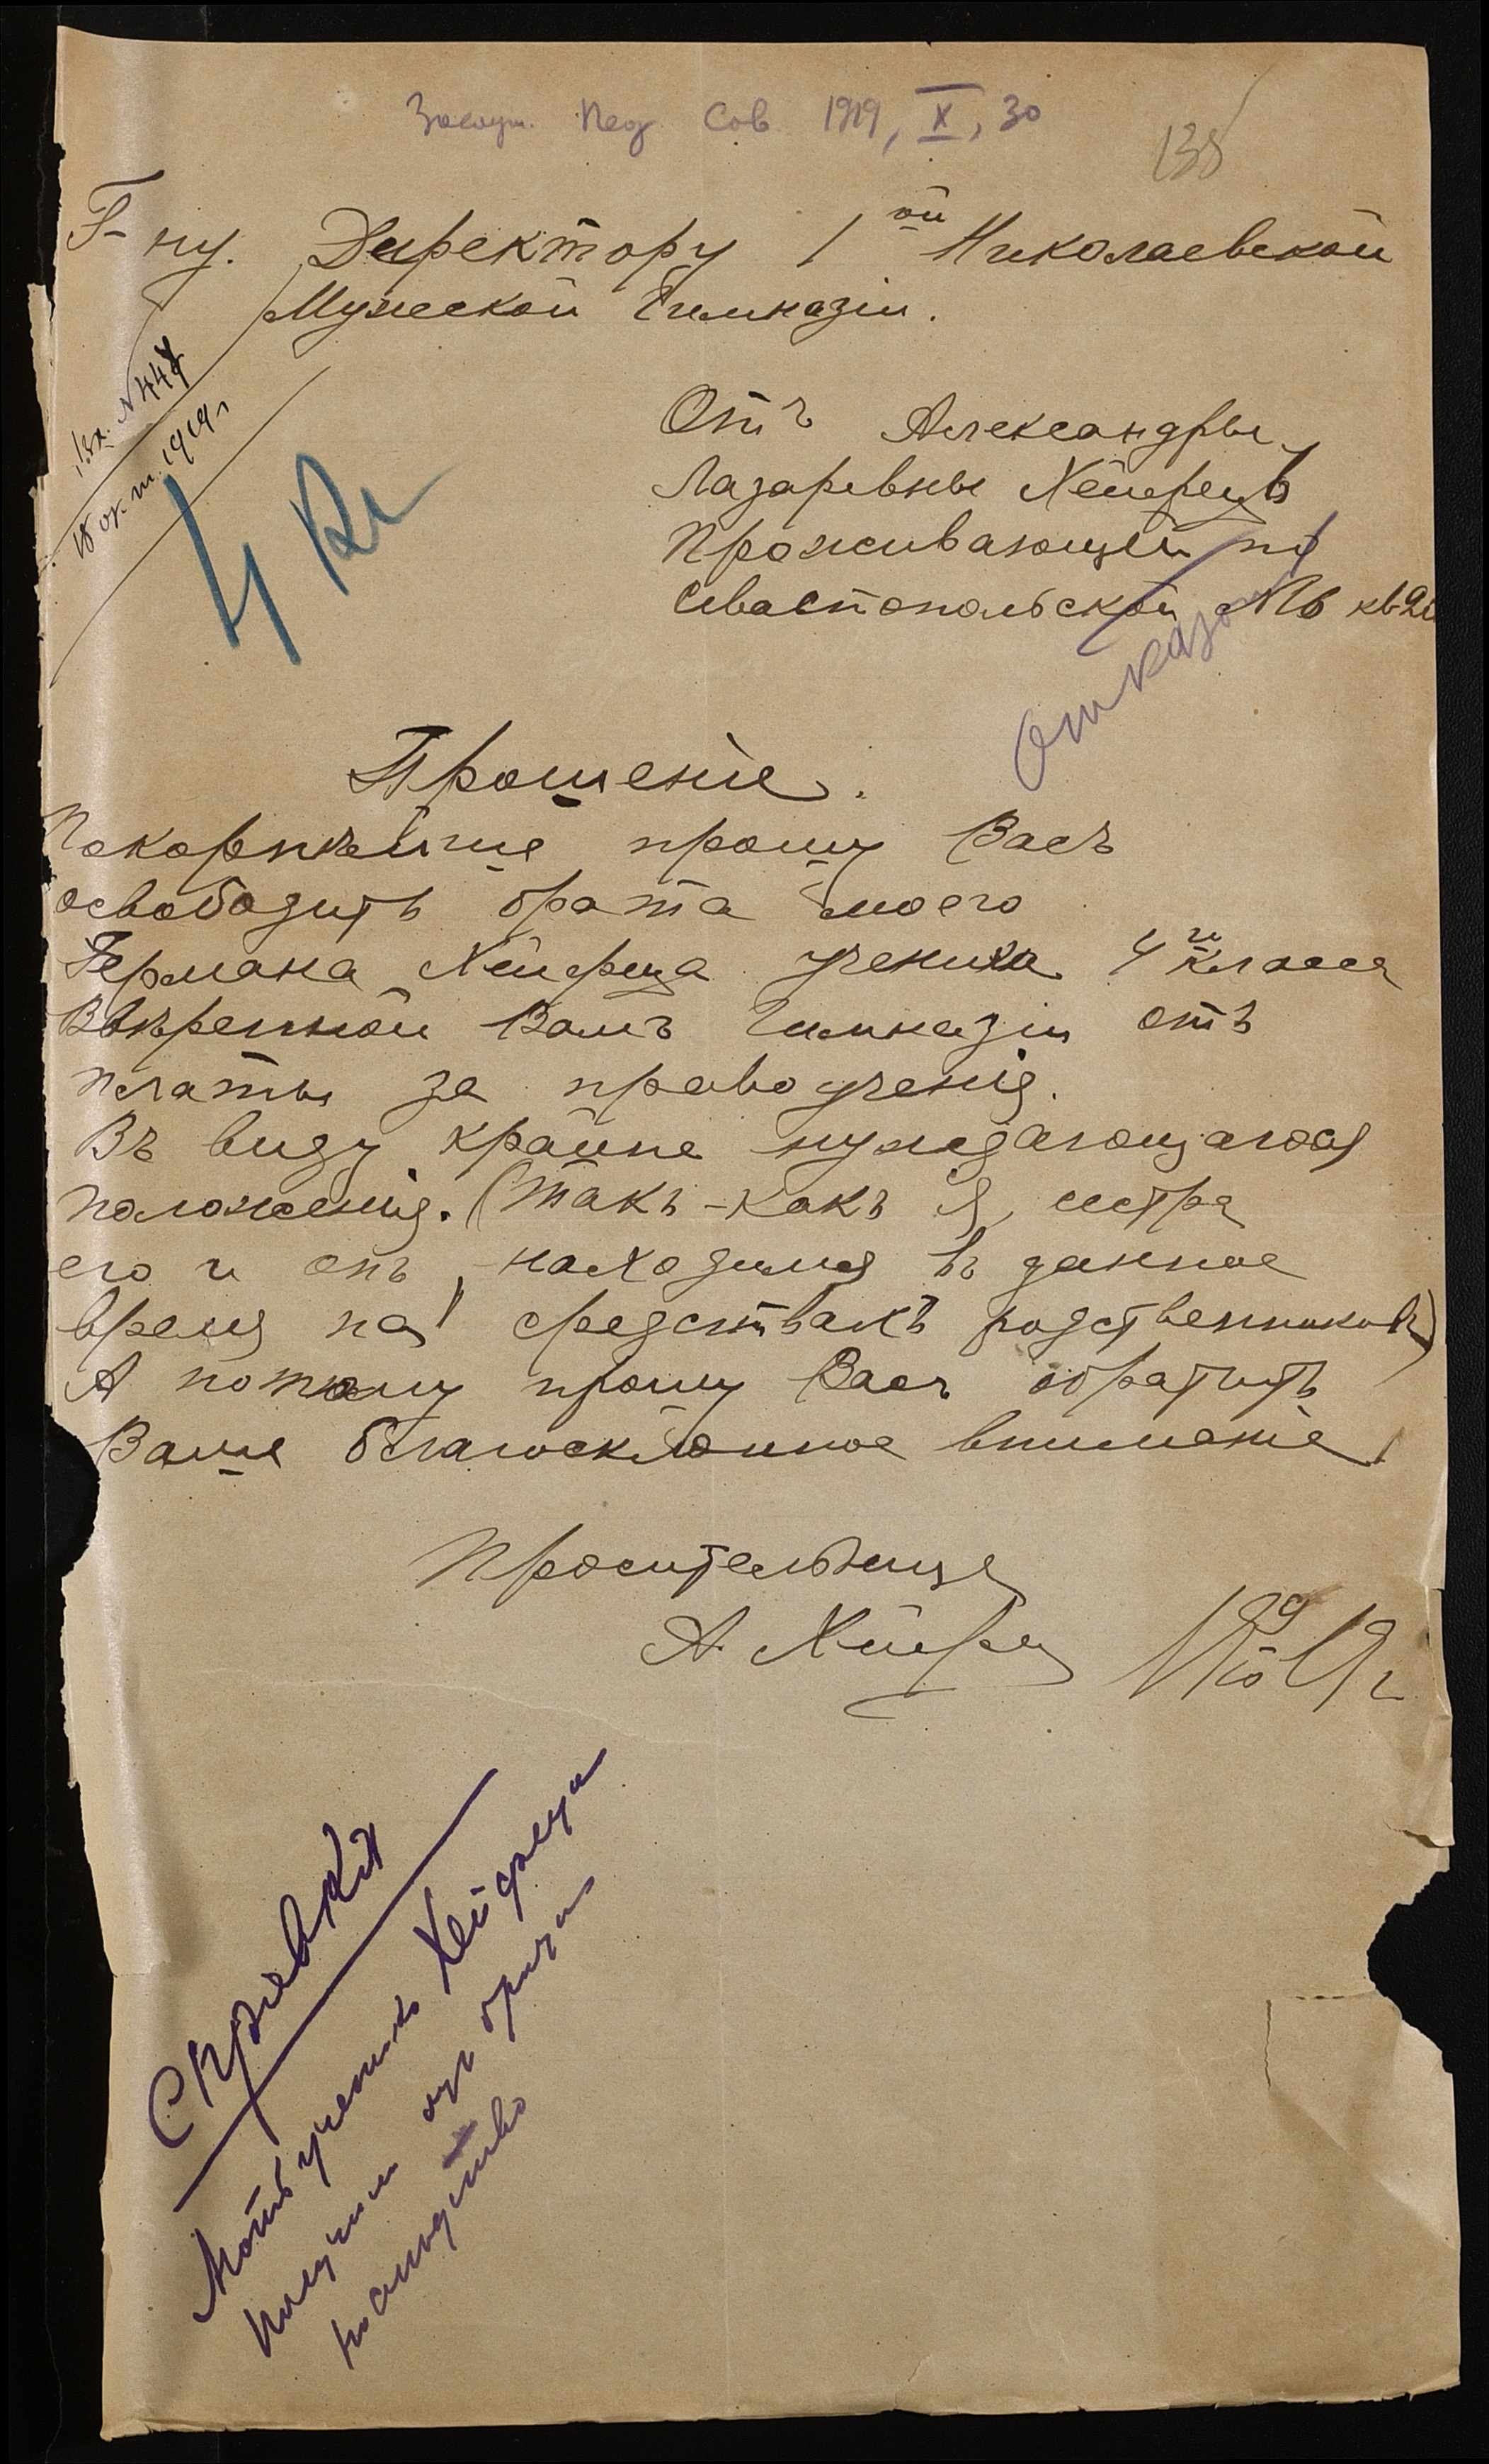 Заслуш. Пед. Сов. 1919, X, 30
138
Г-ну. Директору 1ой Николаевской
Мужеской Гимназіи.
Вх. N 447
18 окт. 1919 г
4 кл
Отъ Александры
Лазаревны Хейфецъ
Проживающей по
Севастопольской №6 кв 2
Отказать
Прошеніе.
Покорнѣйше прошу Васъ
освободить брата моего
Германа Хейфеца ученика 4го класса
Ввѣренной Вамъ Гимназіи отъ
платы за право ученія.
Въ виду крайне нуждающагося
положенія. (Такъ-какъ я, сестра
его и онъ, находимся въ данное
время на средствахъ родственниковъ)
А потому прошу Васъ обратить
Ваше благосклонное вниманіе
Просительница
А. Хейфец
Справка
Мать ученика Хейфеца